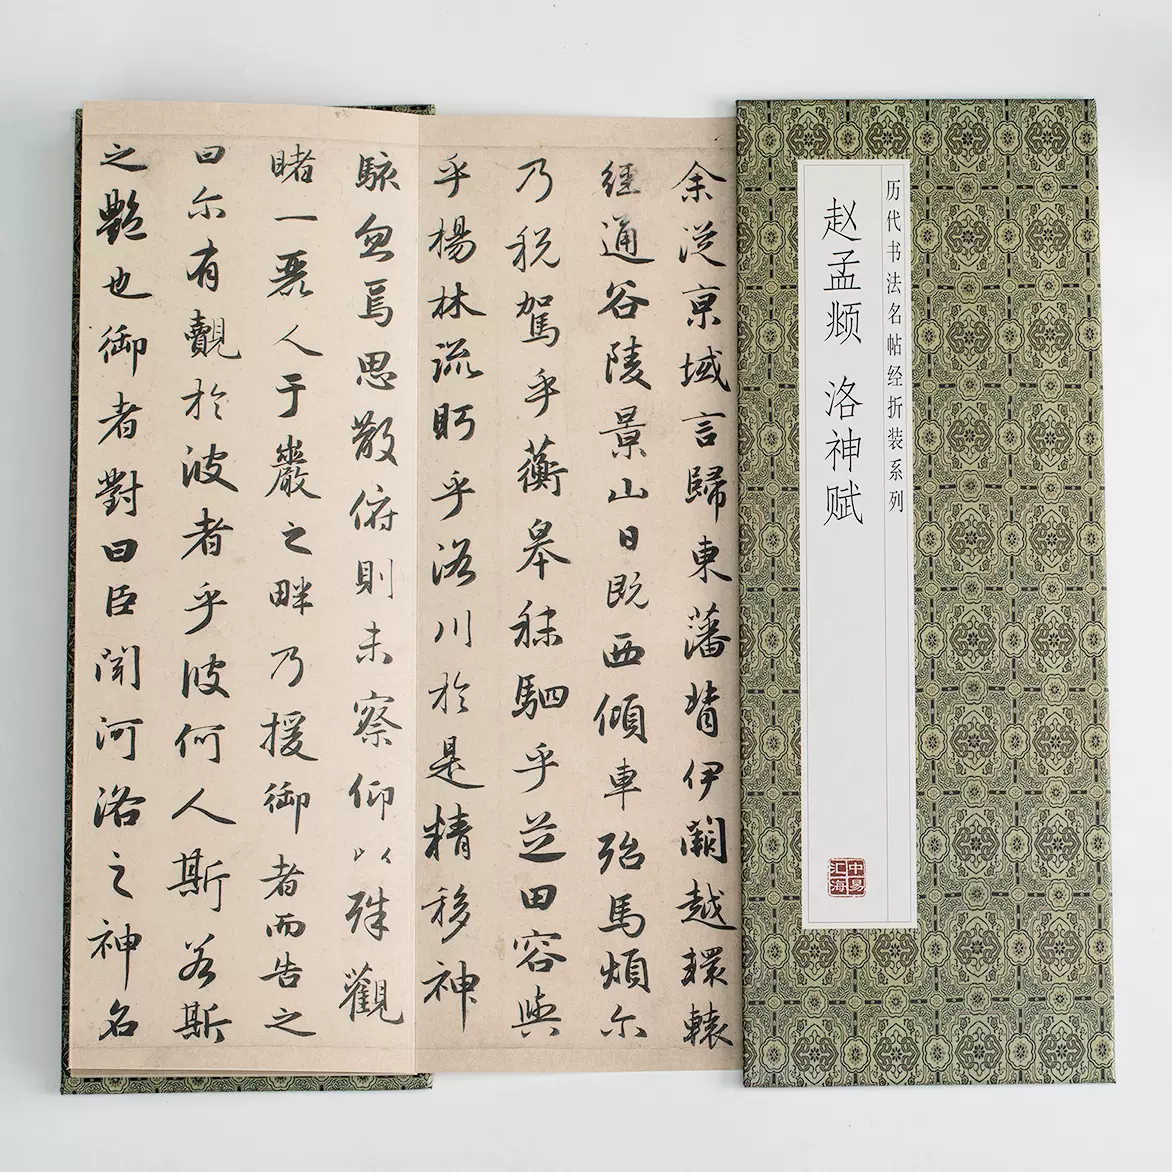 历代书法名帖经折装系列
赵孟𫖯 洛神赋
中易汇海
余從京域言歸東藩背伊闕越轘轅
經通谷陵景山日既西傾車殆馬煩尒
乃稅駕乎蘅皋秣駟乎芝田容與
乎楊林流眄乎洛川於是精移神
駭忽焉思散俯則未察仰以殊觀
睹一麗人于巖之畔乃援御者而告之
曰尒有覿於彼者乎彼何人斯若斯
之艷也御者對曰臣聞河洛之神名